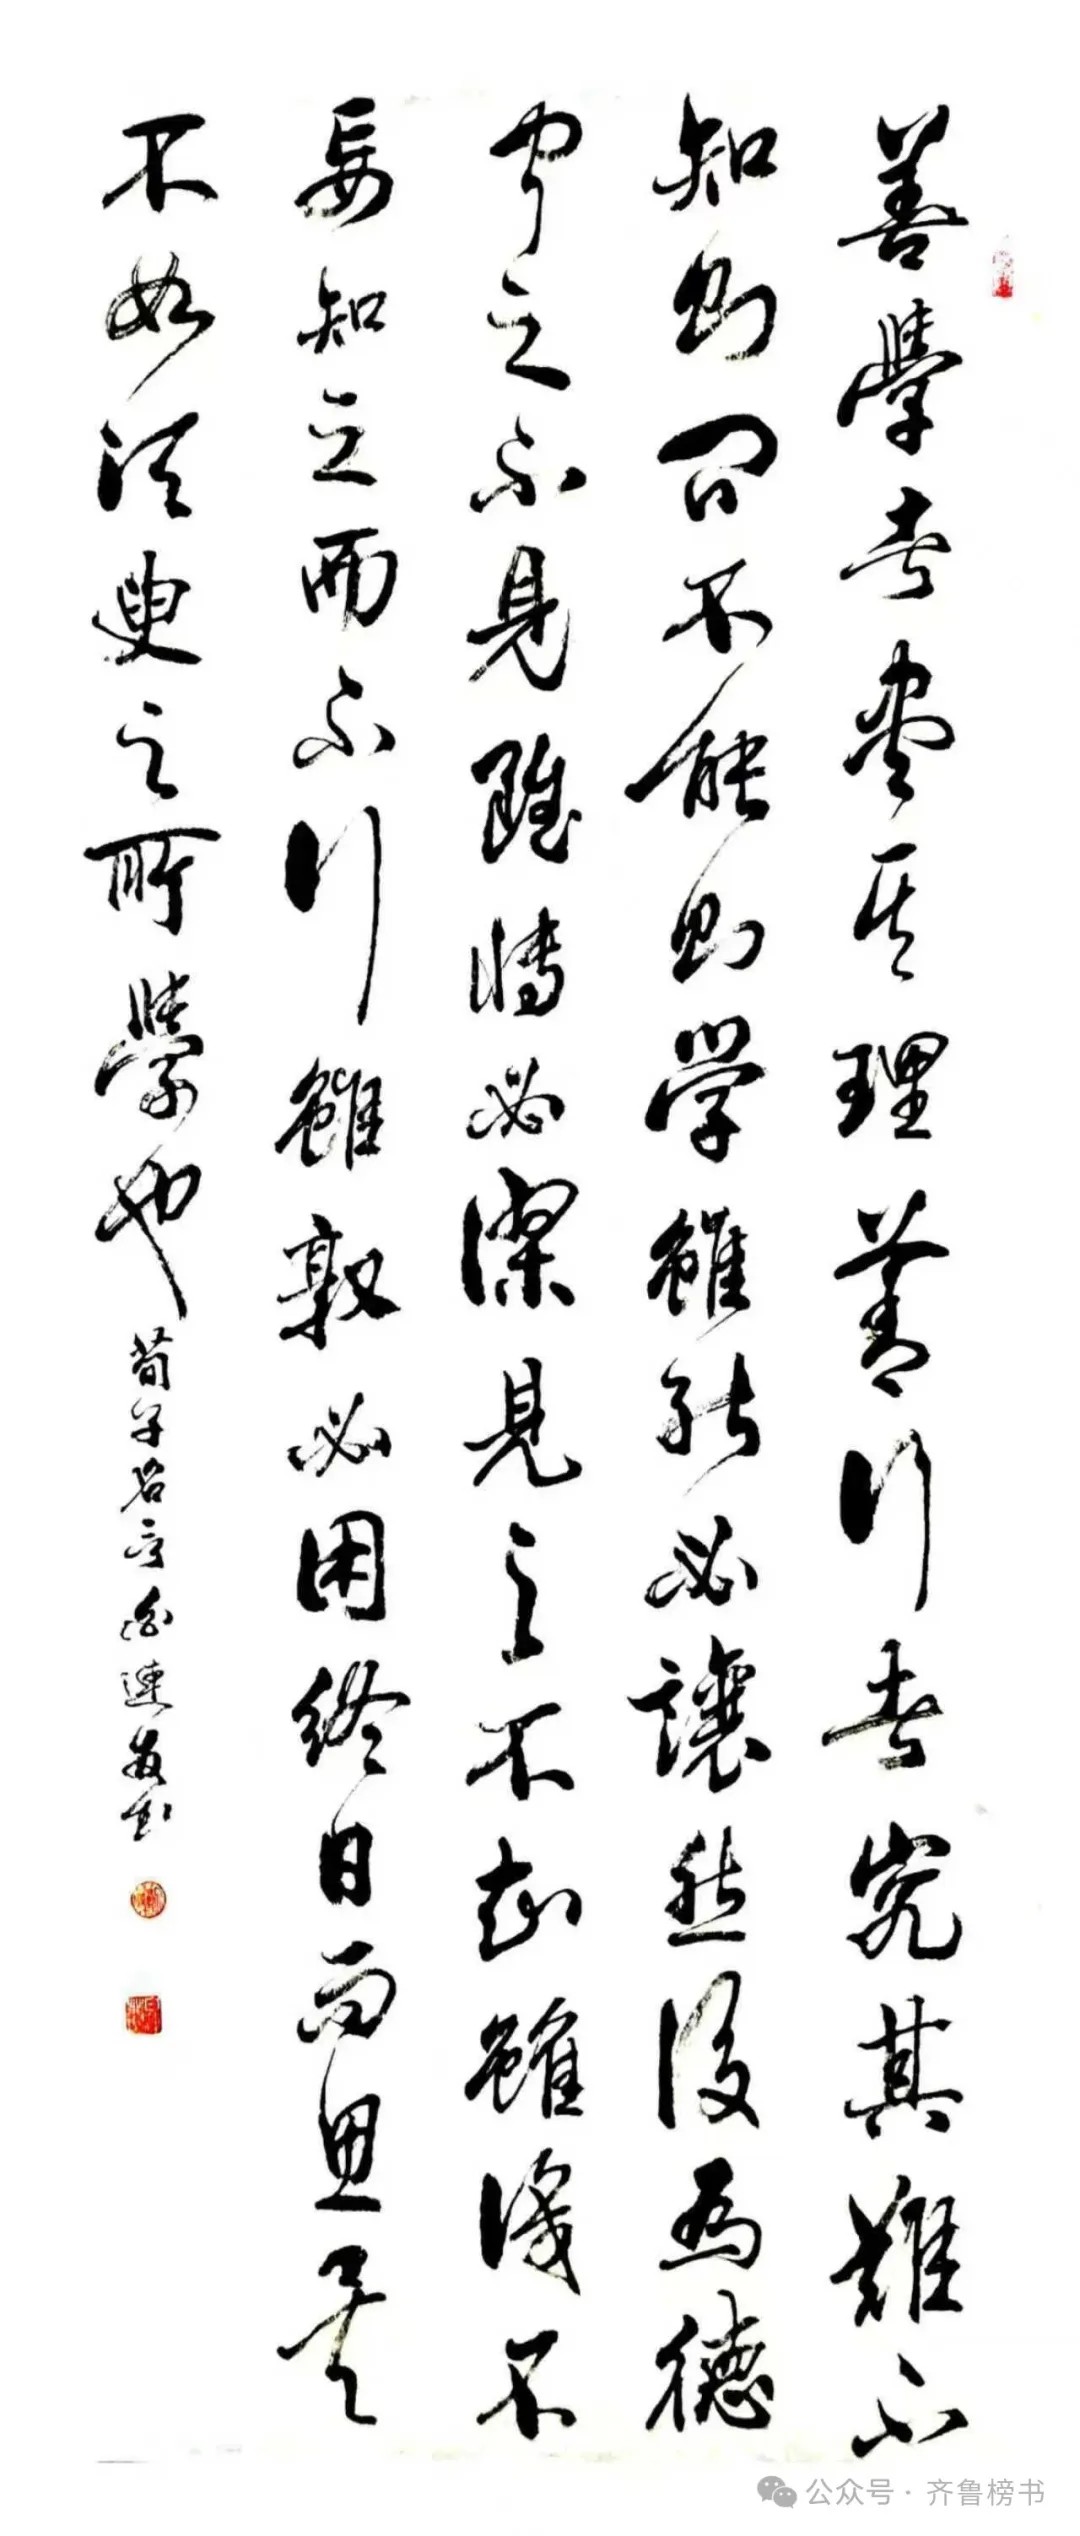 善學者盡其理善行者究其難不
知則问不能則学雖能必讓然後為德
聞之不見雖博必謬見之不知雖識不
妄知之而不行雖敦必困終日而思矣
不如須臾之所學也
荀子名言 連
公众号 · 齐鲁榜书